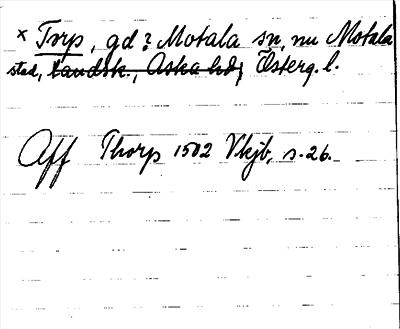 × Torp, gd? Motala sn, nu Motala
stad, landsk., Aska hd, Österg. l.
Aff Thorp 1502 Vkjb, s. 26.